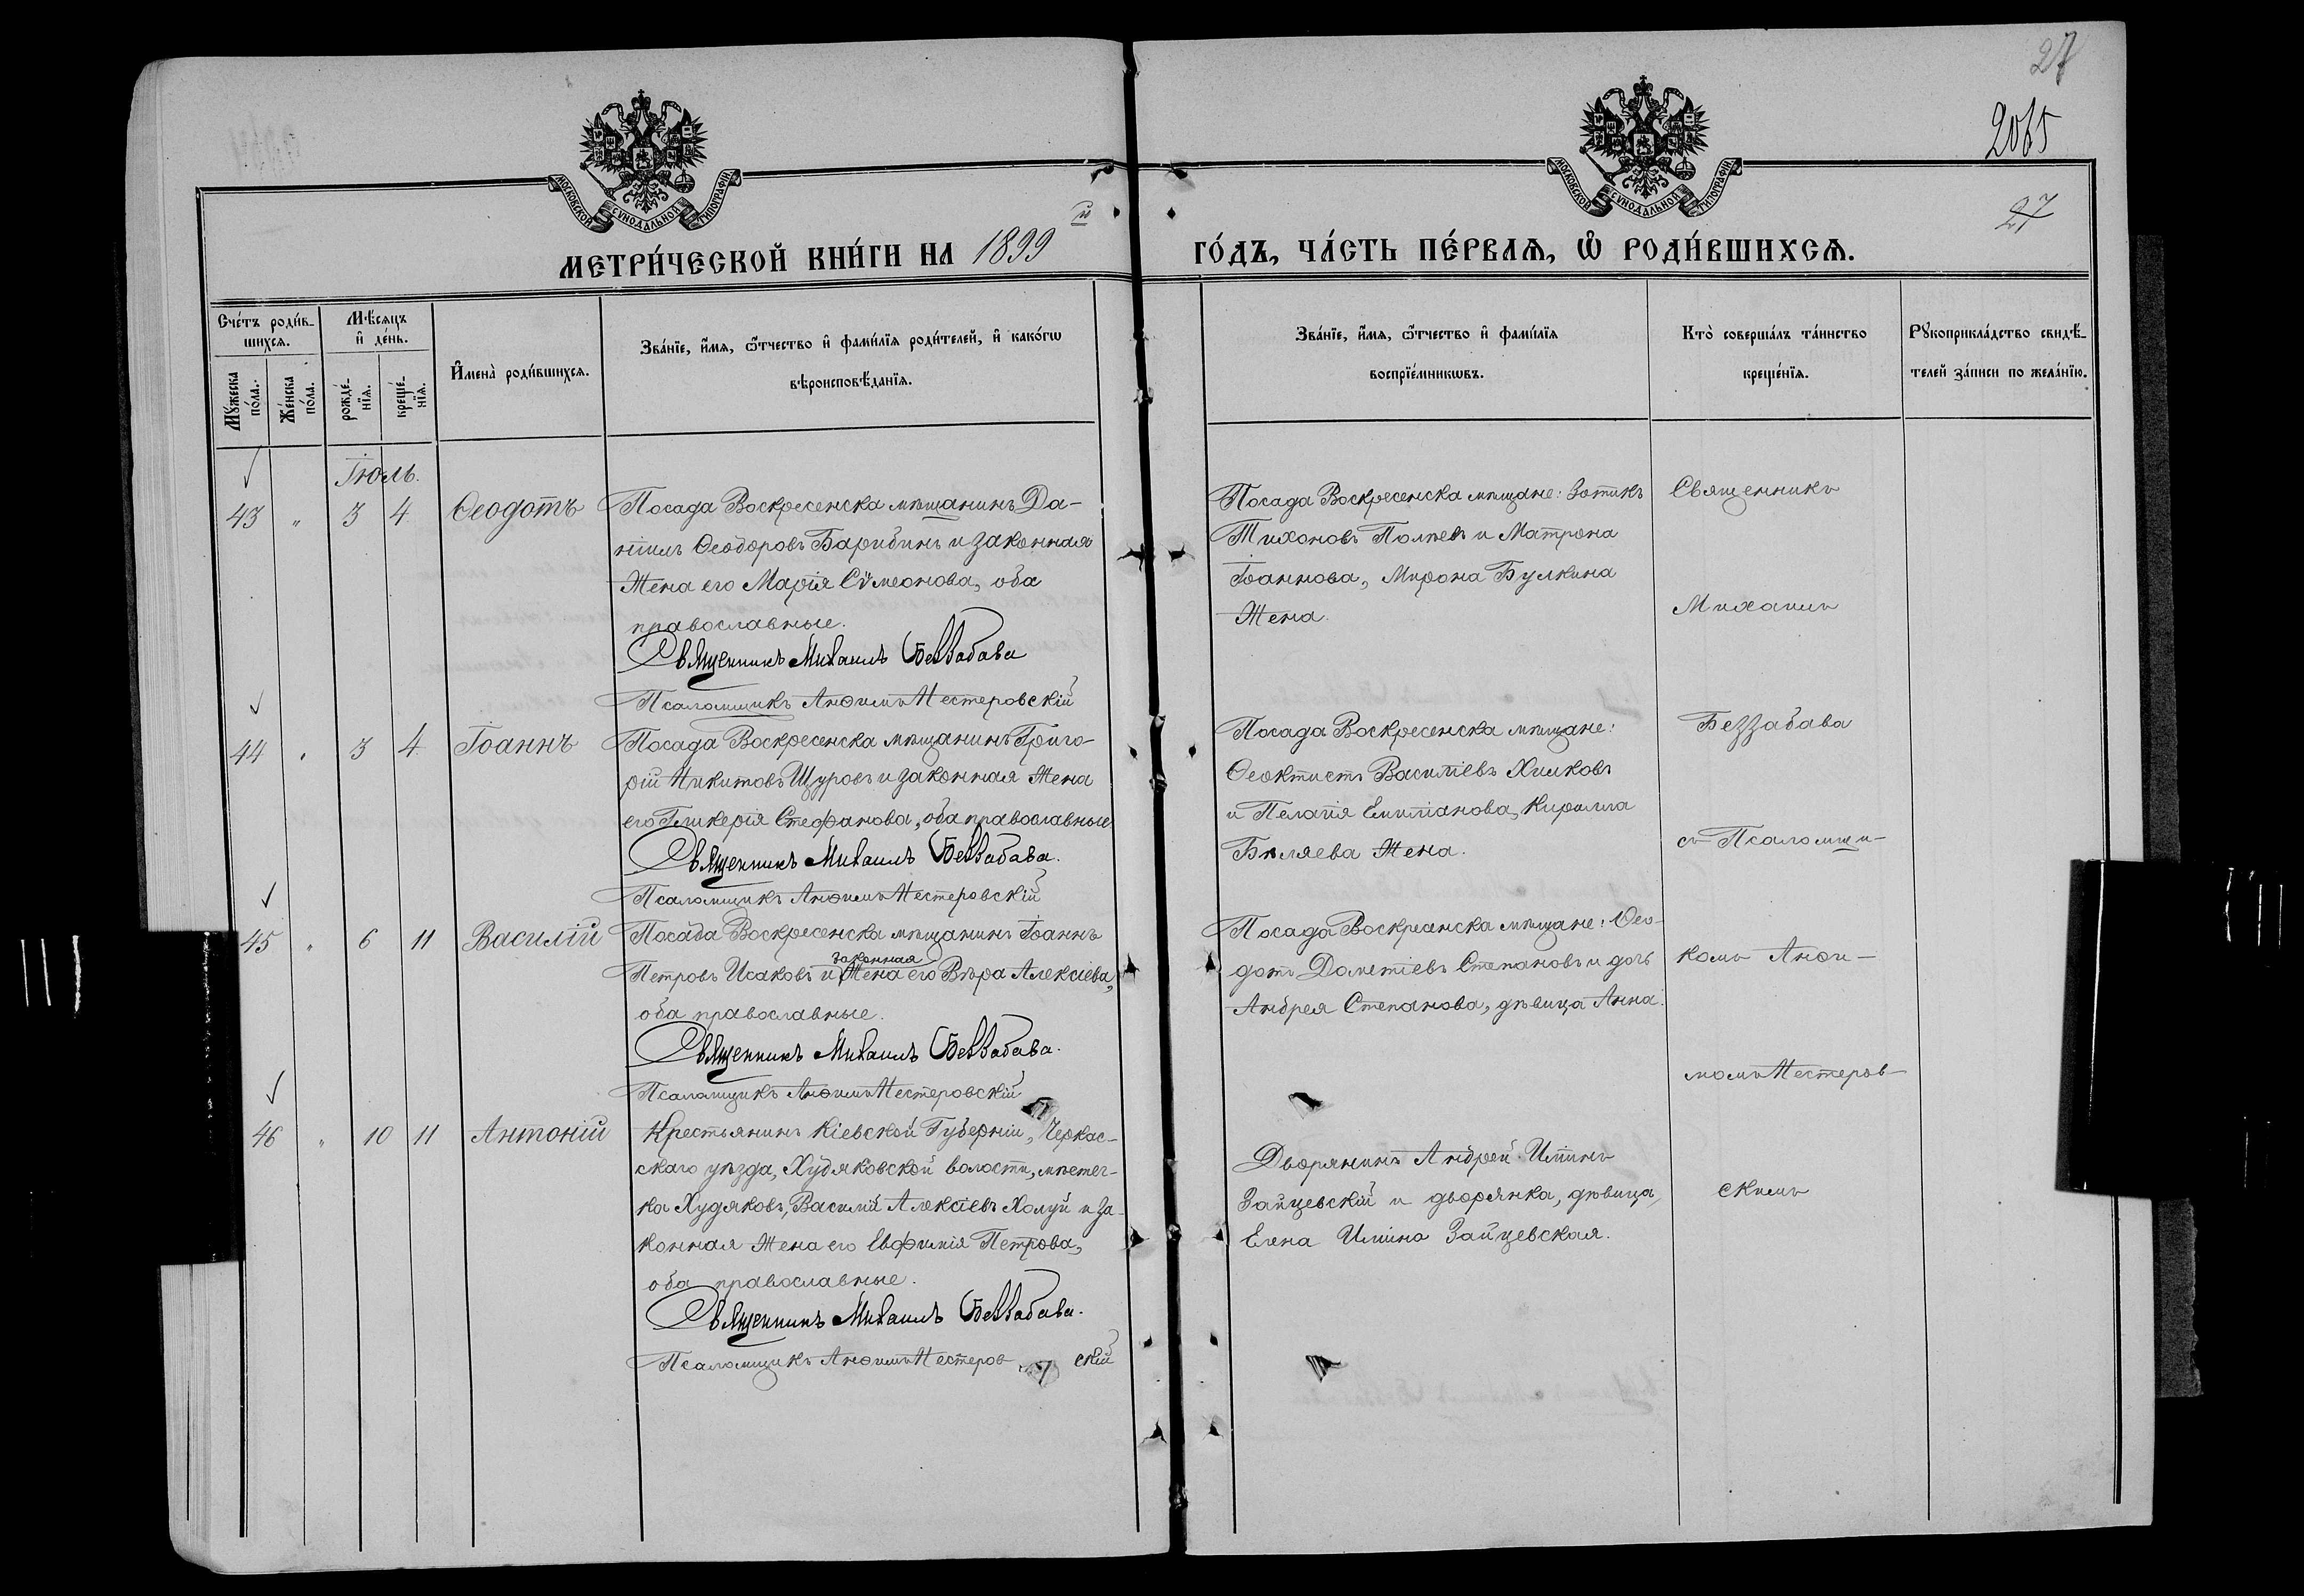 27
2065
27
МОСКОВСКОЙ СѴНОДАЛЬНОЙ ТИПОГРАФІИ
МОСКОВСКОЙ СѴНОДАЛЬНОЙ ТИПОГРАФІИ
МЕТРИ́ЧЕСКОЙ КНИ́ГИ НА 1899 й ГО́ДЪ, ЧА́СТЬ ПЕ́РВАѦ, Ѡ҆ РОДИ́ВШИХСѦ.
Сче́тъ роди́в-
шихсѧ.
Мꙋ́жеска по́ла.
Же́нска по́ла.
Мѣ́сяцъ и҆ де́нь.
рожде́-
нїѧ.
креще́-
нїѧ.
И҆мена̀ роди́вшихсѧ.
Зва́нїе, и҆́мѧ, ѻ҆́тчество и҆ фами́лїѧ роди́телей, и҆ како́гѡ
вѣроисповѣ́данїѧ.
Зва́нїе, и҆́мѧ, ѻ҆́тчество и҆ фами́лїѧ
воспрїе́мникѡвъ.
Кто̀ соверша́лъ та́инство
креще́нїѧ.
Рꙋкоприкла́дство свидѣ́-
телей за́писи по жела́нїю.
Іюль.
43 " 3 4 Ѳеодотъ
Посада Воскресенска мѣщанинъ Да-
ніилъ Ѳеодоровъ Барибинъ и законная
жена его Марія Сѵмеонова, оба
православные.
Священникъ Михаилъ Беззабава
Псаломщикъ Анѳимъ Нестеровскій
Посада Воскресенска мѣщане: Зотикъ
Тихоновъ Полѣевъ и Матрона
Іоаннова, Мирона Булкина
жена.
44 " 3 4 Іоаннъ
Посада Воскресенска мѣщанинъ Григо-
рій Никитовъ Щуровъ и законная жена
его Гликерія Стефанова, оба православные
Священникъ Михаилъ Беззабава.
Псаломщикъ Анѳимъ Нестеровскій
Посада Воскресенска мѣщане:
Ѳеоктистъ Василіевъ Хилковъ
и Пелагія Емиліанова, Кирилла
Бѣляева жена.
45 " 6 11 Василій
Посада Воскресенска мѣщанинъ Іоаннъ
законная
Петровъ Исаковъ и жена его Вѣра Алексіева,
оба православные.
Священникъ Михаилъ Беззабава.
Псаломщикъ Анѳимъ Нестеровскій
Посада Воскресанска мѣщане: Ѳео-
дотъ Дометіевъ Степановъ и дочь
Андрея Степанова, дѣвица Анна.
46 " 10 11 Антоній
Крестьянинъ Кіевской Губерніи, Черкас-
скаго уѣзда, Худяковской волости, мѣстеч-
ка Худяковъ, Василій Алексіевъ Холуй и за-
конная жена его Евфимія Петрова,
оба православные.
Священникъ Михаилъ Беззабава.
Псаломщикъ Анѳимъ Нестеровскій
Дворянинъ Андрей Иліинъ
Зайцевскій и дворянка, дѣвица,
Елена Иліина Зайцевская.
Священникъ
Михаилъ
Беззабава
съ Псаломщи-
комъ Анѳи-
момъ Нестеров-
скимъ